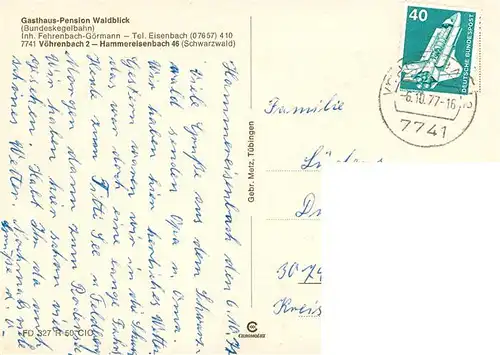 Gasthaus-Pension Waldblick
(Bundeskegelbahn)
Inh. Fehrenbach-Görmann – Tel. Eisenbach (07657) 410
7741 Vöhrenbach 2 – Hammereisenbach 46 (Schwarzwald)
Hammereisenbach den 6.10.77
Viele Grüße aus dem Schwarz-
wald senden Opa u. Oma.
Wir haben hier herrliches Wetter
Gestern waren wir in die Schweiz
das war doch eine lange Fahrt
Heute zum Titti See u. Feldberg
Morgen dann zum
Wir haben hier schon viel
gesehen. Habt Ihr da auch
schönes Wetter. Nochmals viele
Grüße
FD 327 R 50 CIO
Gebr. Metz, Tübingen
40
DEUTSCHE BUNDESPOST
-6.10.77-16
7741
Familie
307
Kreis